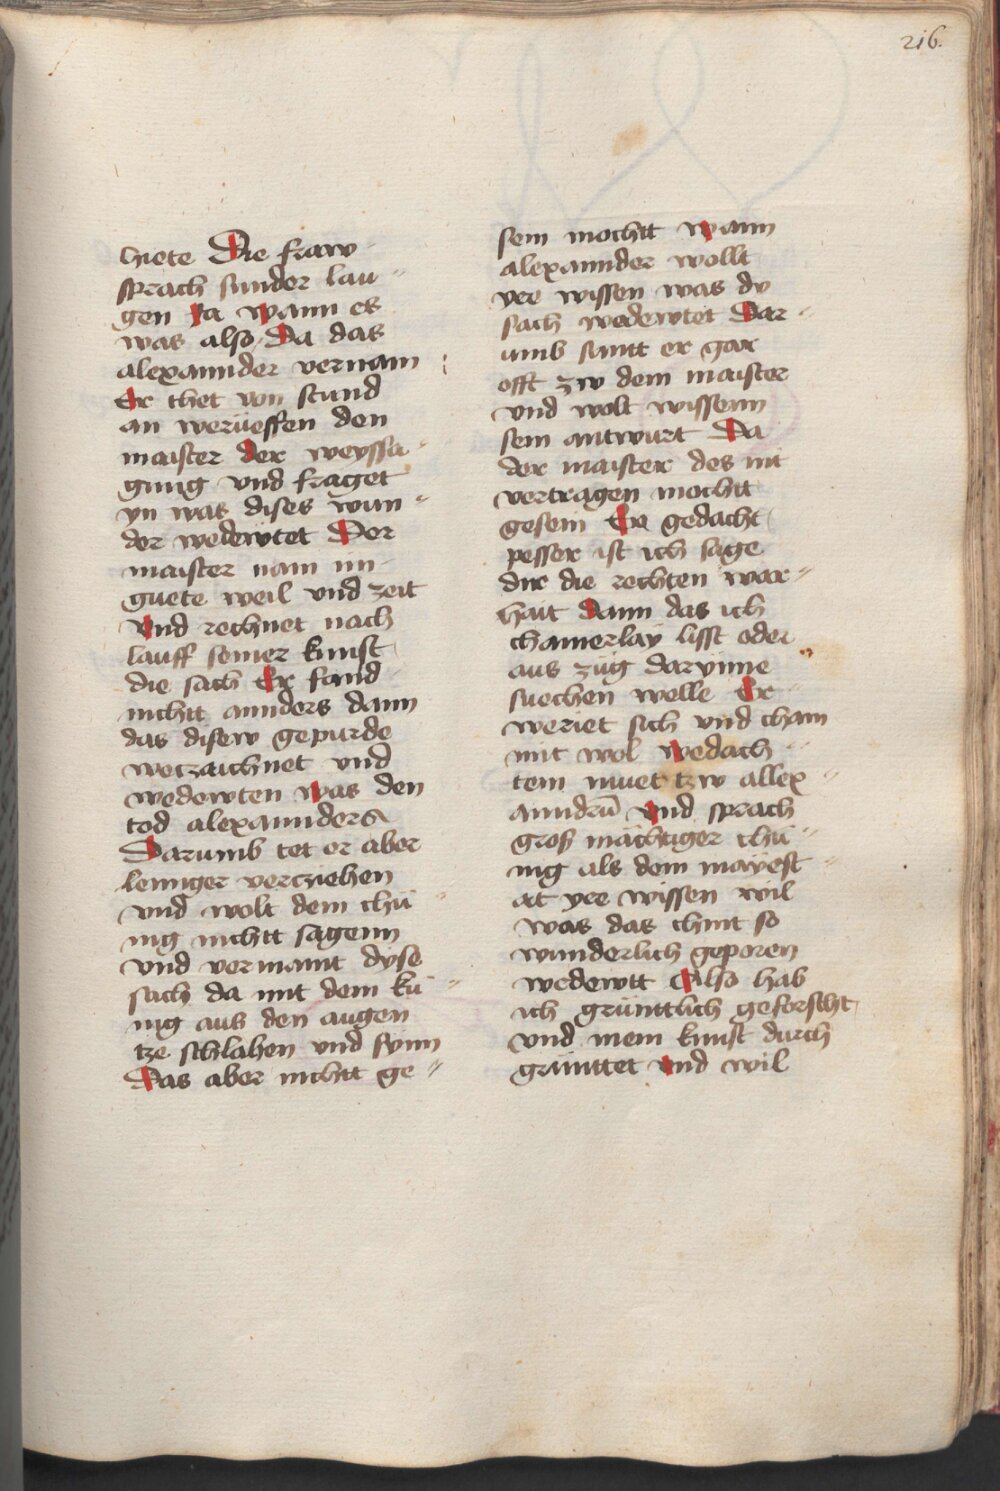 216.
huete Die fraw
sprach sunder lau
gen Ja wann es
was also Da das
alexannder vernam
Er thet von stund
an werüeffen den
maister der weyssa
gung vnd fraget
yn was dises wun
der wedewtet Der
maister nam im
guete weil vnd zeit
Vnd rechnet nach
lauff seiner kunst
die sach Er fand
nichtt annders dann
das disew gepurde
weczaichnet vnd
wedewten was den
tod alexannders
Darumb tet er aber
lennger vercziehen
vnd wolt dem chü
nig nichtt sagenn
vnd vermaint dyse
sach da mit dem kü
nig aus den augen
tze schlahen vnd synn
Das aber nichtt ge
sein mochtt wann
alexannder wollt
yee wissen was dy
sach wedewtet Dar
umb sannt er gar
offt zw dem maister
vnd wolt wissenn
sein antwurt Da
der maister des nit
vertragen mochtt
gesein Er gedacht
pesser ist ich sage
dir die rechten war
hait dann das ich
chainerlay lisst oder
aus züg darynne
suechen welle Er
weriet sich vnd cham
mit wol wedach
tem muet tzw allex
anndrū vnd sprach
gros mächtiger chü
nig als dein mayest
at yee wissen wil
was das chint so
wunderlich geporen
wedewtt Also hab
ich grünttlich geforscht
vnd mein kunst durch
grünttet vnd wil